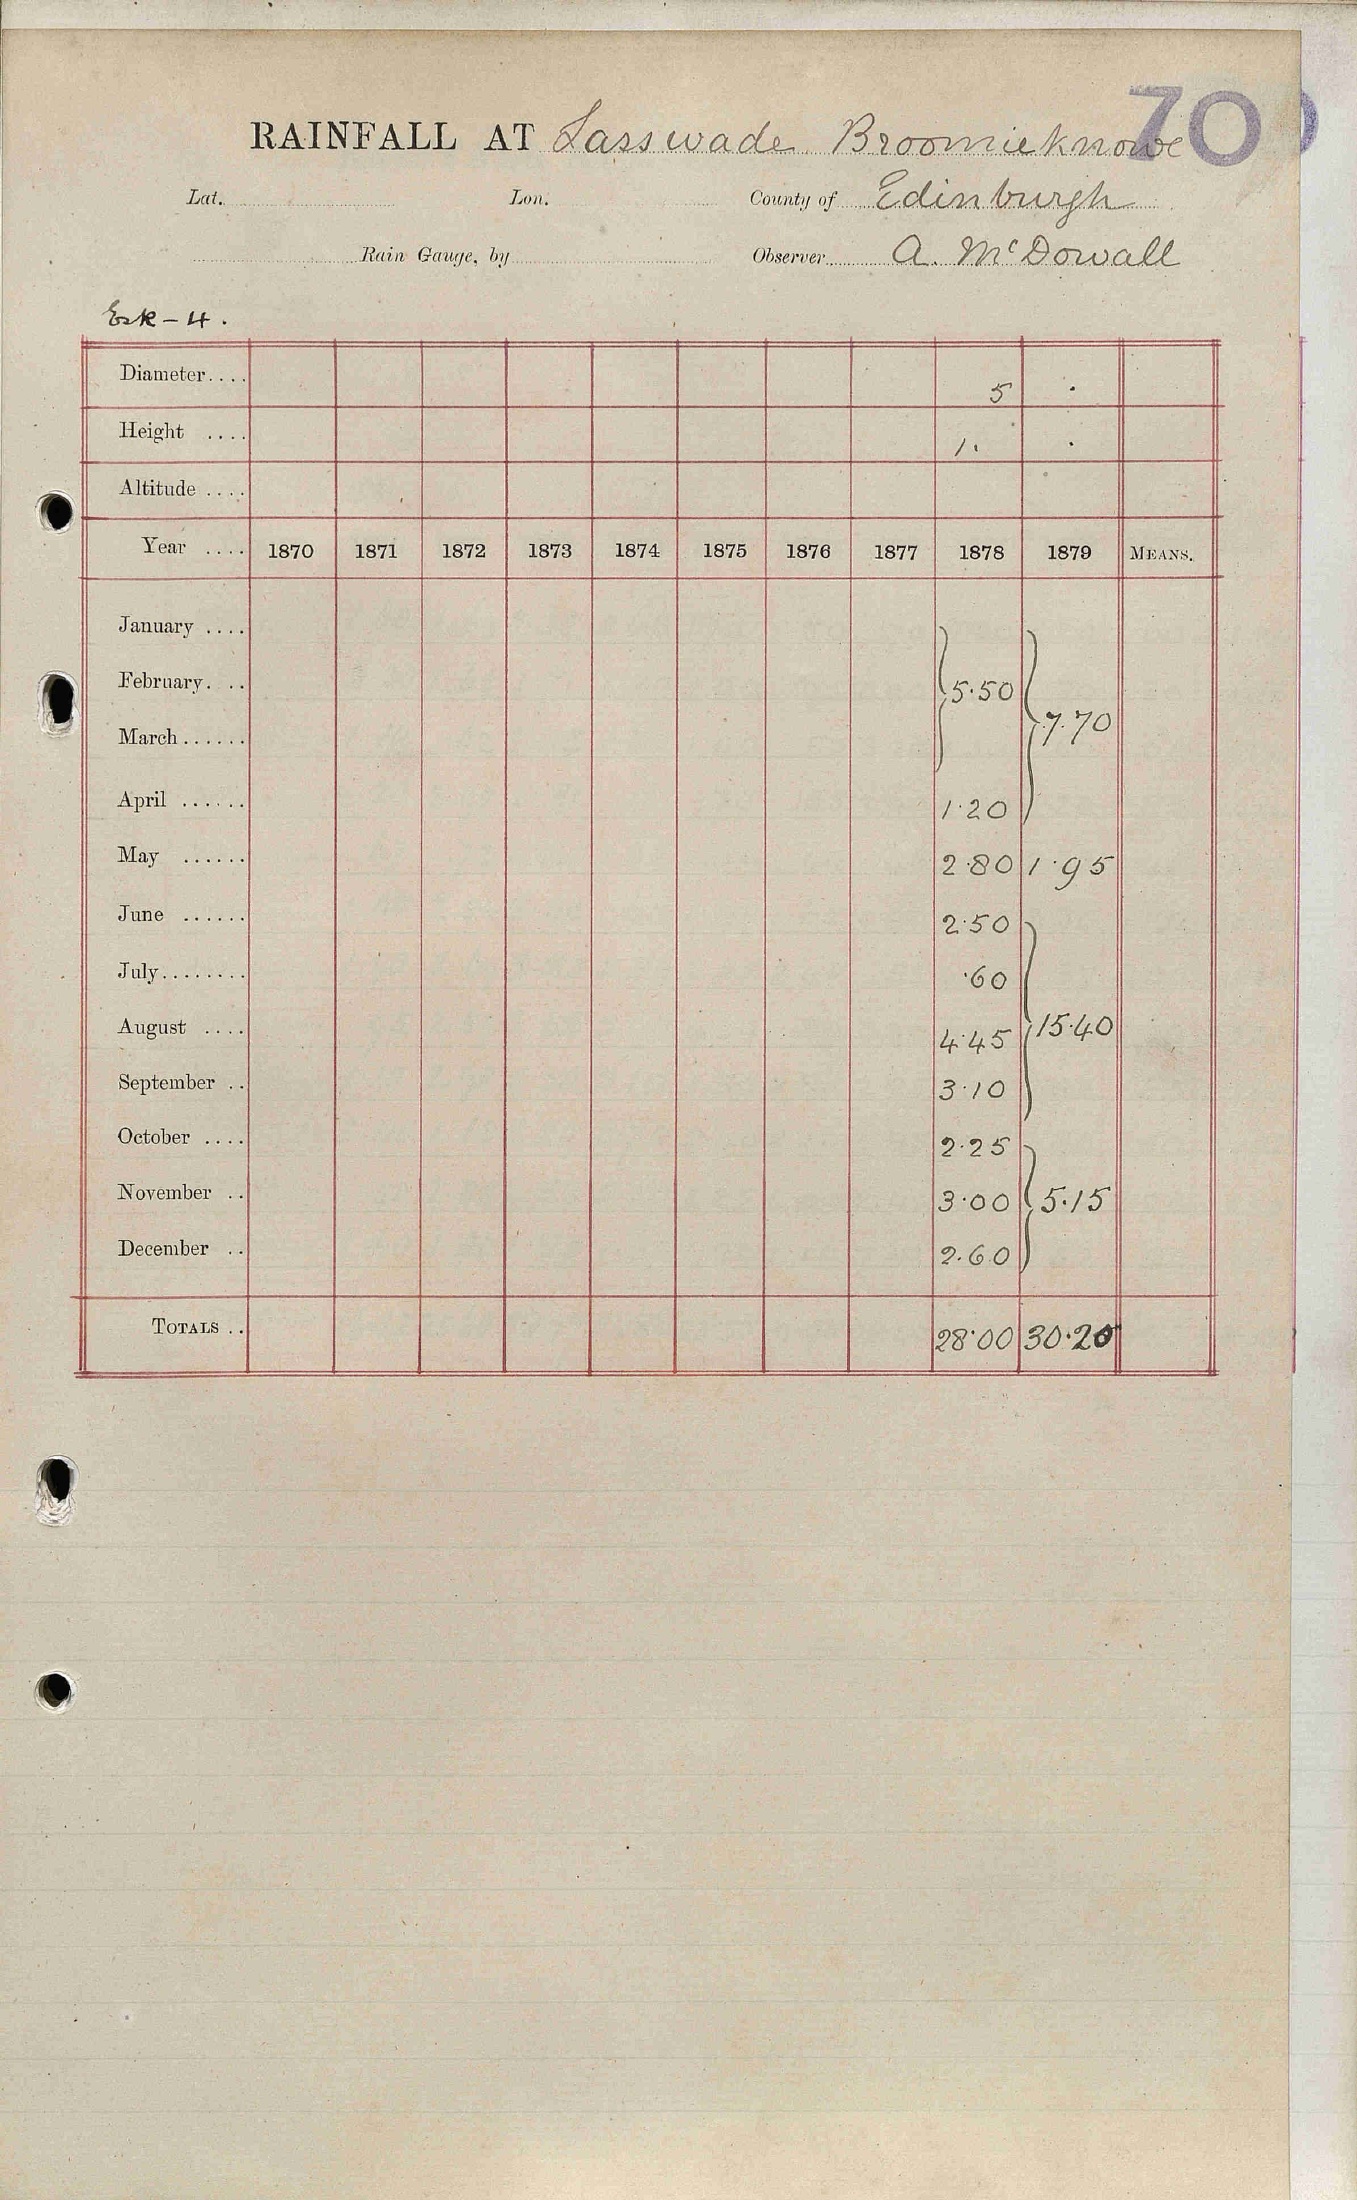 70
RAINFALL AT Lasswade Broomieknowe
Lat. Lon. County of Edinburgh
Rain Gauge, by Observer A. McDowall
Esk - 4.
Diameter.... 5 .
Height .... 1. .
Altitude ....
Year .... 1870 1871 1872 1873 1874 1875 1876 1877 1878 1879 MEANS.
January ....
February. .. } 5.50
March...... } 7.70
April ...... 1.20
May ...... 2.80 1.95
June ...... 2.50
July........ .60
August .... 4.45 } 15.40
September .. 3.10
October .... 2.25
November .. 3.00 } 5.15
December .. 2.60
TOTALS .. 28.00 30.20